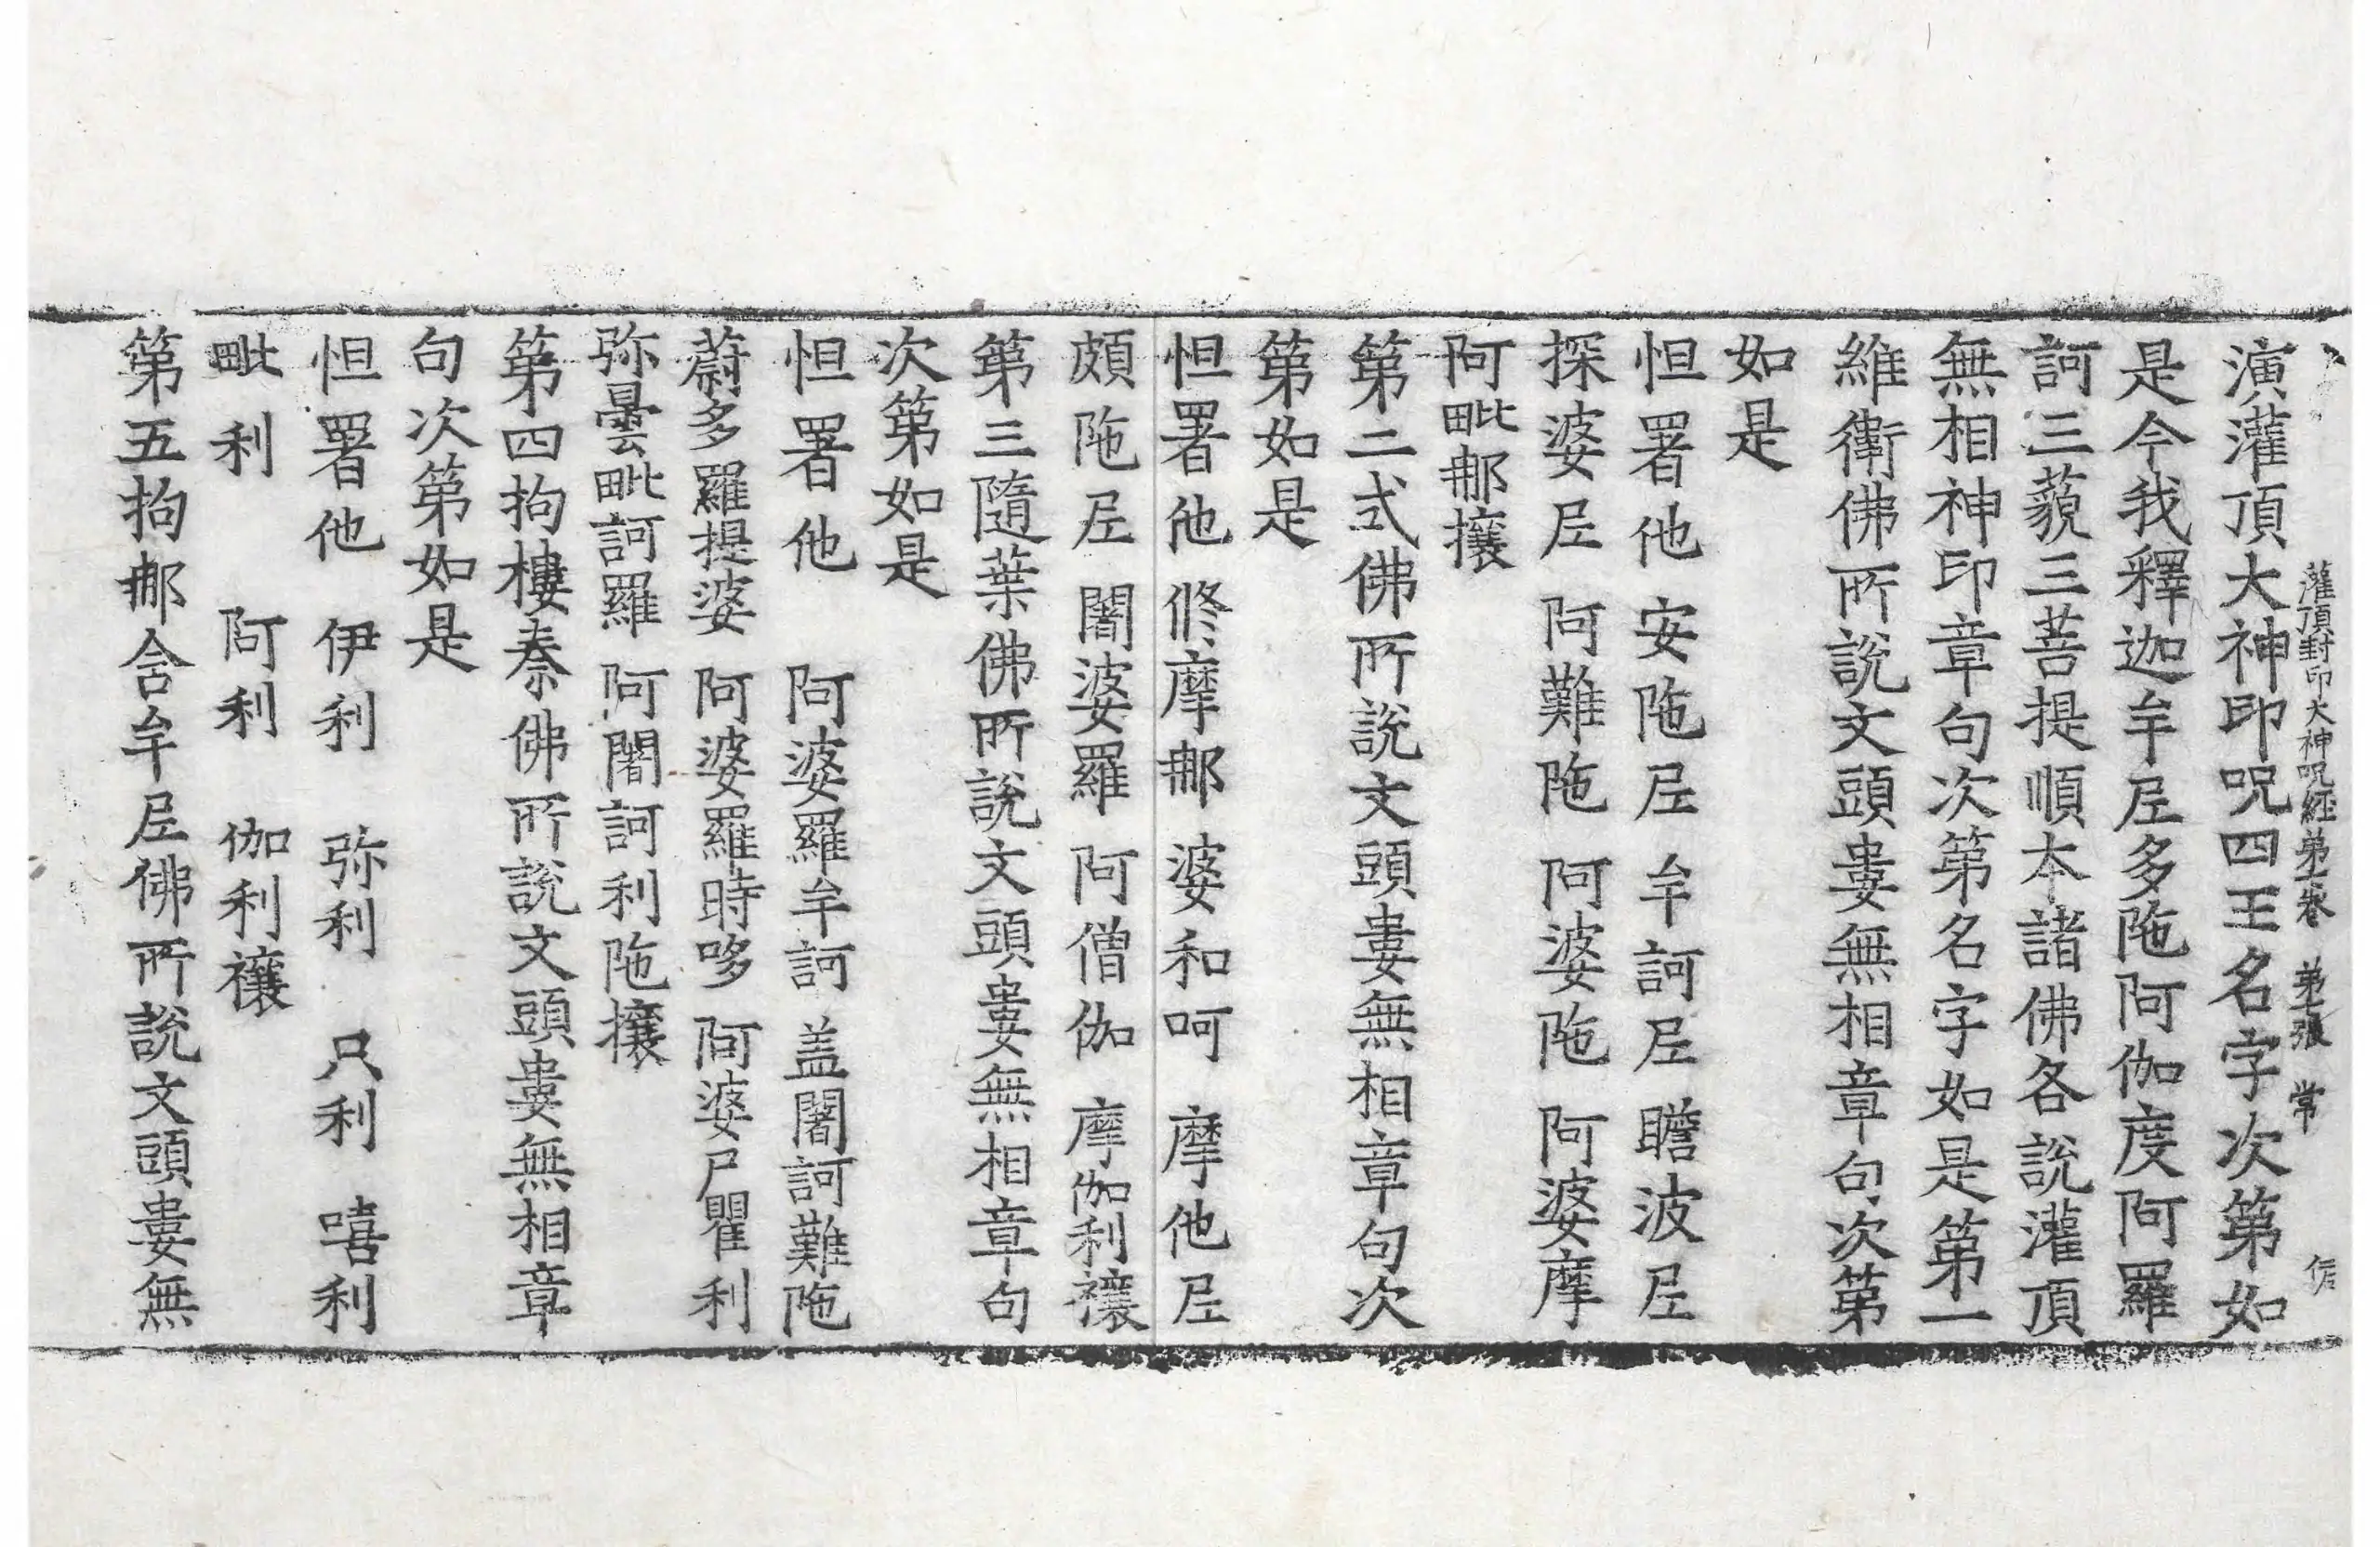 灌頂封印大神呪經第七卷 第七張 常
演灌頂大神印呪四王名字次第如
是今我釋迦牟尼多陁阿伽度阿羅
訶三藐三菩提順本諸佛各說灌頂
無相神印章句次第名字如是第一
維衛佛所說文頭婁無相章句次第
如是
怛署他 安陁尼 牟訶尼 瞻波尼
探婆尼 阿難陁 阿婆陁 阿婆摩
阿毗那攘
第二式佛所說文頭婁無相章句次
第如是
怛署他 修摩那 婆和呵 摩他尼
頗陁尼 闍婆羅 阿僧伽 摩伽利禳
第三隨葉佛所說文頭婁無相章句
次第如是
怛署他 阿婆羅牟訶 盖闍訶難陁
蔚多羅提婆 阿婆羅時哆 阿婆尸瞿利
弥曇毗訶羅 阿闍訶利陁攘
第四拘樓秦佛所說文頭婁無相章
句次第如是
怛署他 伊利 弥利 只利 嘻利
毗利 阿利 伽利禳
第五拘那含牟尼佛所說文頭婁無